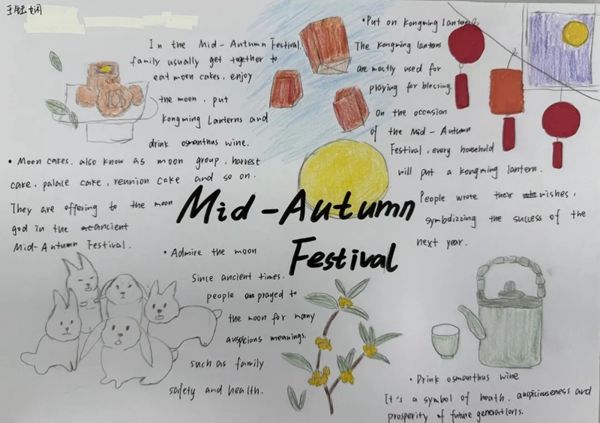 In the Mid-Autumn Festival,
family usually get together to
eat moon cakes, enjoy
the moon, put
Kongming Lanterns and
drink osmanthus wine.
• Moon cakes, also know as moon group, harvest
cake, palace cake, reunion cake and so on.
They are offering to the moon
god in the ancient
Mid-Autumn Festival.
• Put on kongming lanterns,
The kongming lantern
are mostly used for
playing for blessing.
On the occasion
of the Mid-Autumn
Festival, every household
will put a kongming lantern.
People wrote their wishes,
symbolizing the success of the
next year.
Mid-Autumn
Festival
• Admire the moon
Since ancient times,
people prayed to
the moon for many
auspicious meanings,
such as family
safety and health.
• Drink osmanthus wine
It's a symbol of heath, auspiciousness and
prosperity of future generations.